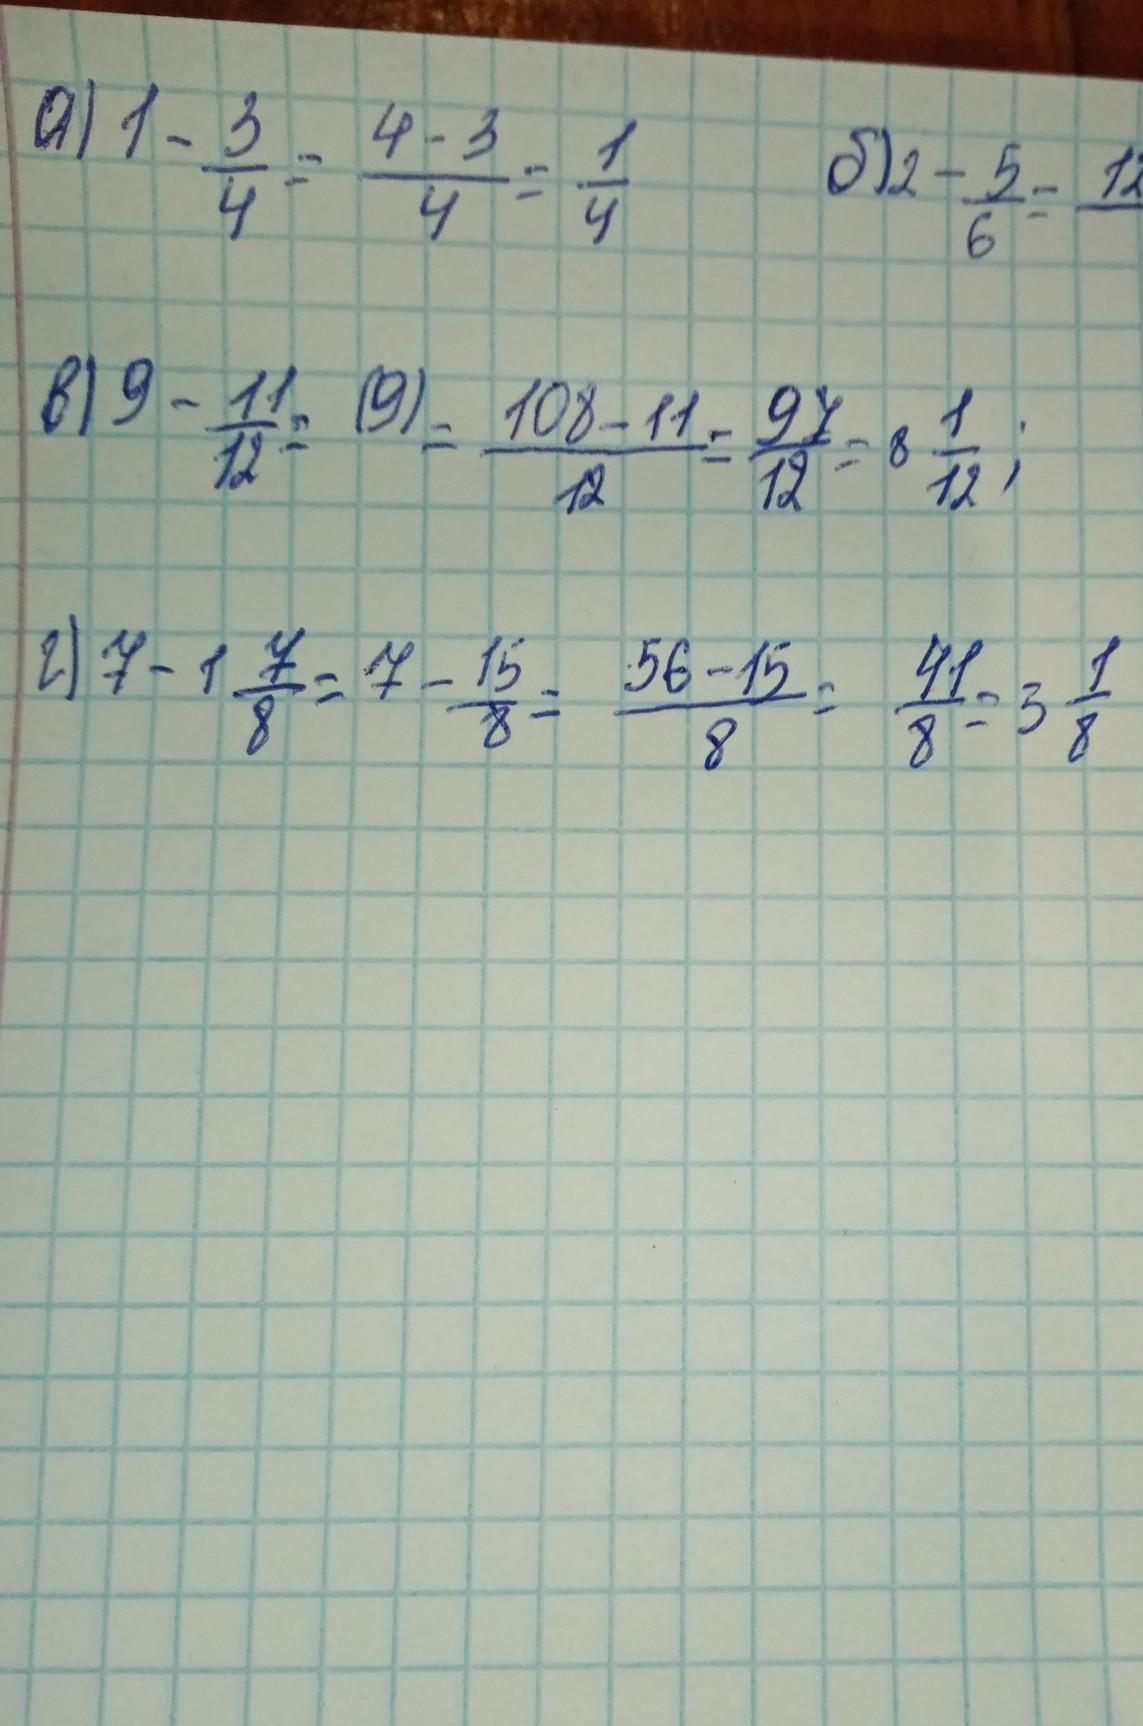 а) 1 - 3/4 = 4-3/4 = 1/4 б) 2 - 5/6 = 12
в) 9 - 11/12 = (9) = 108-11/12 = 97/12 = 8 1/12 ;
г) 7 - 1 7/8 = 7 - 15/8 = 56-15/8 = 41/8 = 3 1/8